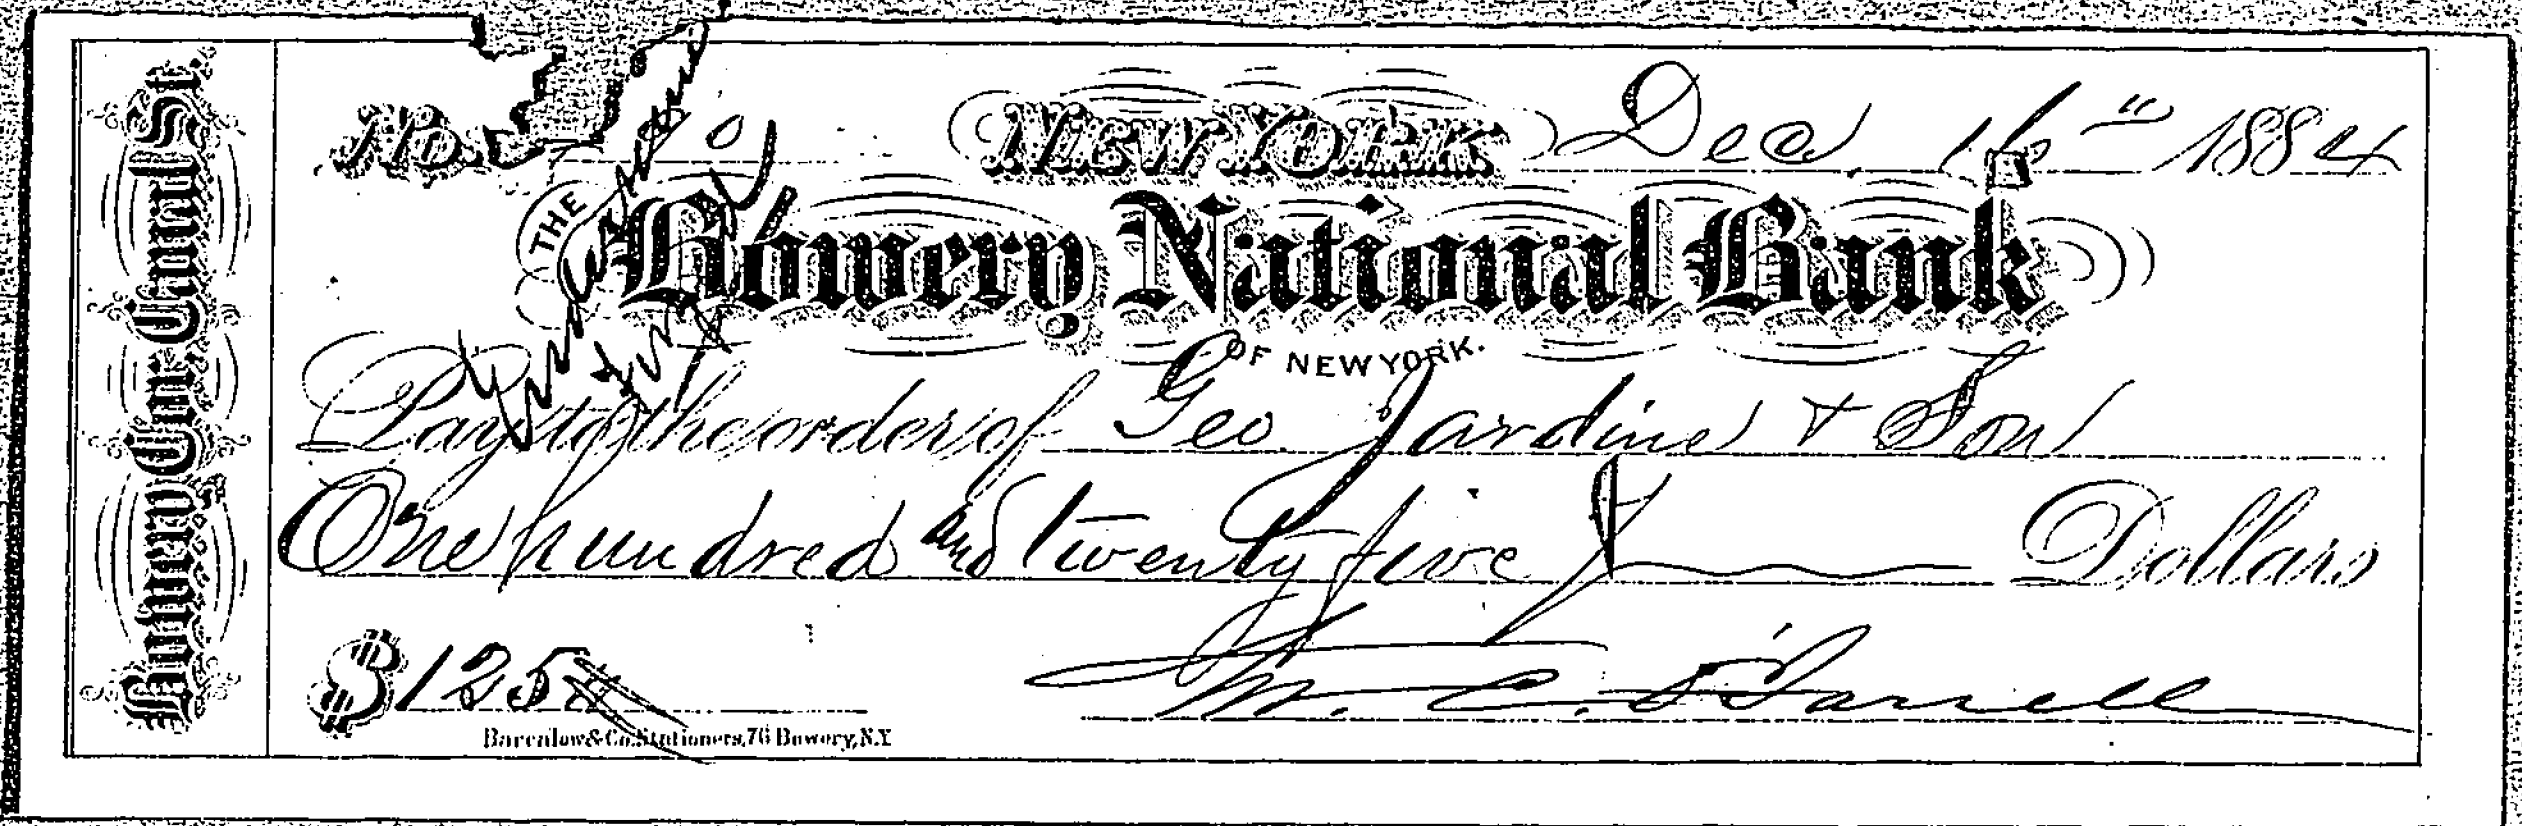 Bowery Cor. Canal St.
No.
New York Dec. 16" 1884
THE
Bowery National Bank
OF NEW YORK.
Pay to the order of Geo. Jardine & Son
One hundred and twenty five Dollars
$125
Barcalow & Co. Stationers, 76 Bowery, N.Y.